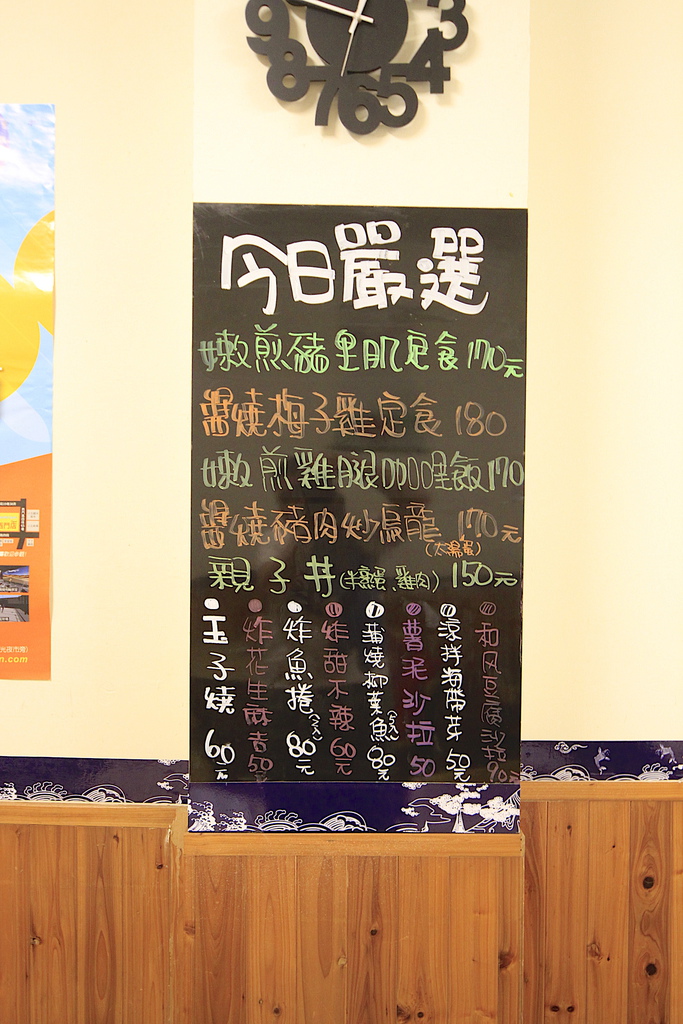 9 8 7 6 5 4 3
今日嚴選
嫩煎豬里肌定食170元
醬燒梅子雞定食 180
嫩煎雞腿咖哩飯170
醬燒豬肉炒烏龍 170元
(太陽蛋)
親子丼(半熟蛋、雞肉) 150元
玉子燒 60元
炸花生麻吉 50元
炸魚捲(2入) 80元
炸甜不辣 60元
蒲燒柳葉魚(5入) 80元
薯泥沙拉 50
涼拌海帶芽 50元
和风豆腐沙拉 90元
n.com